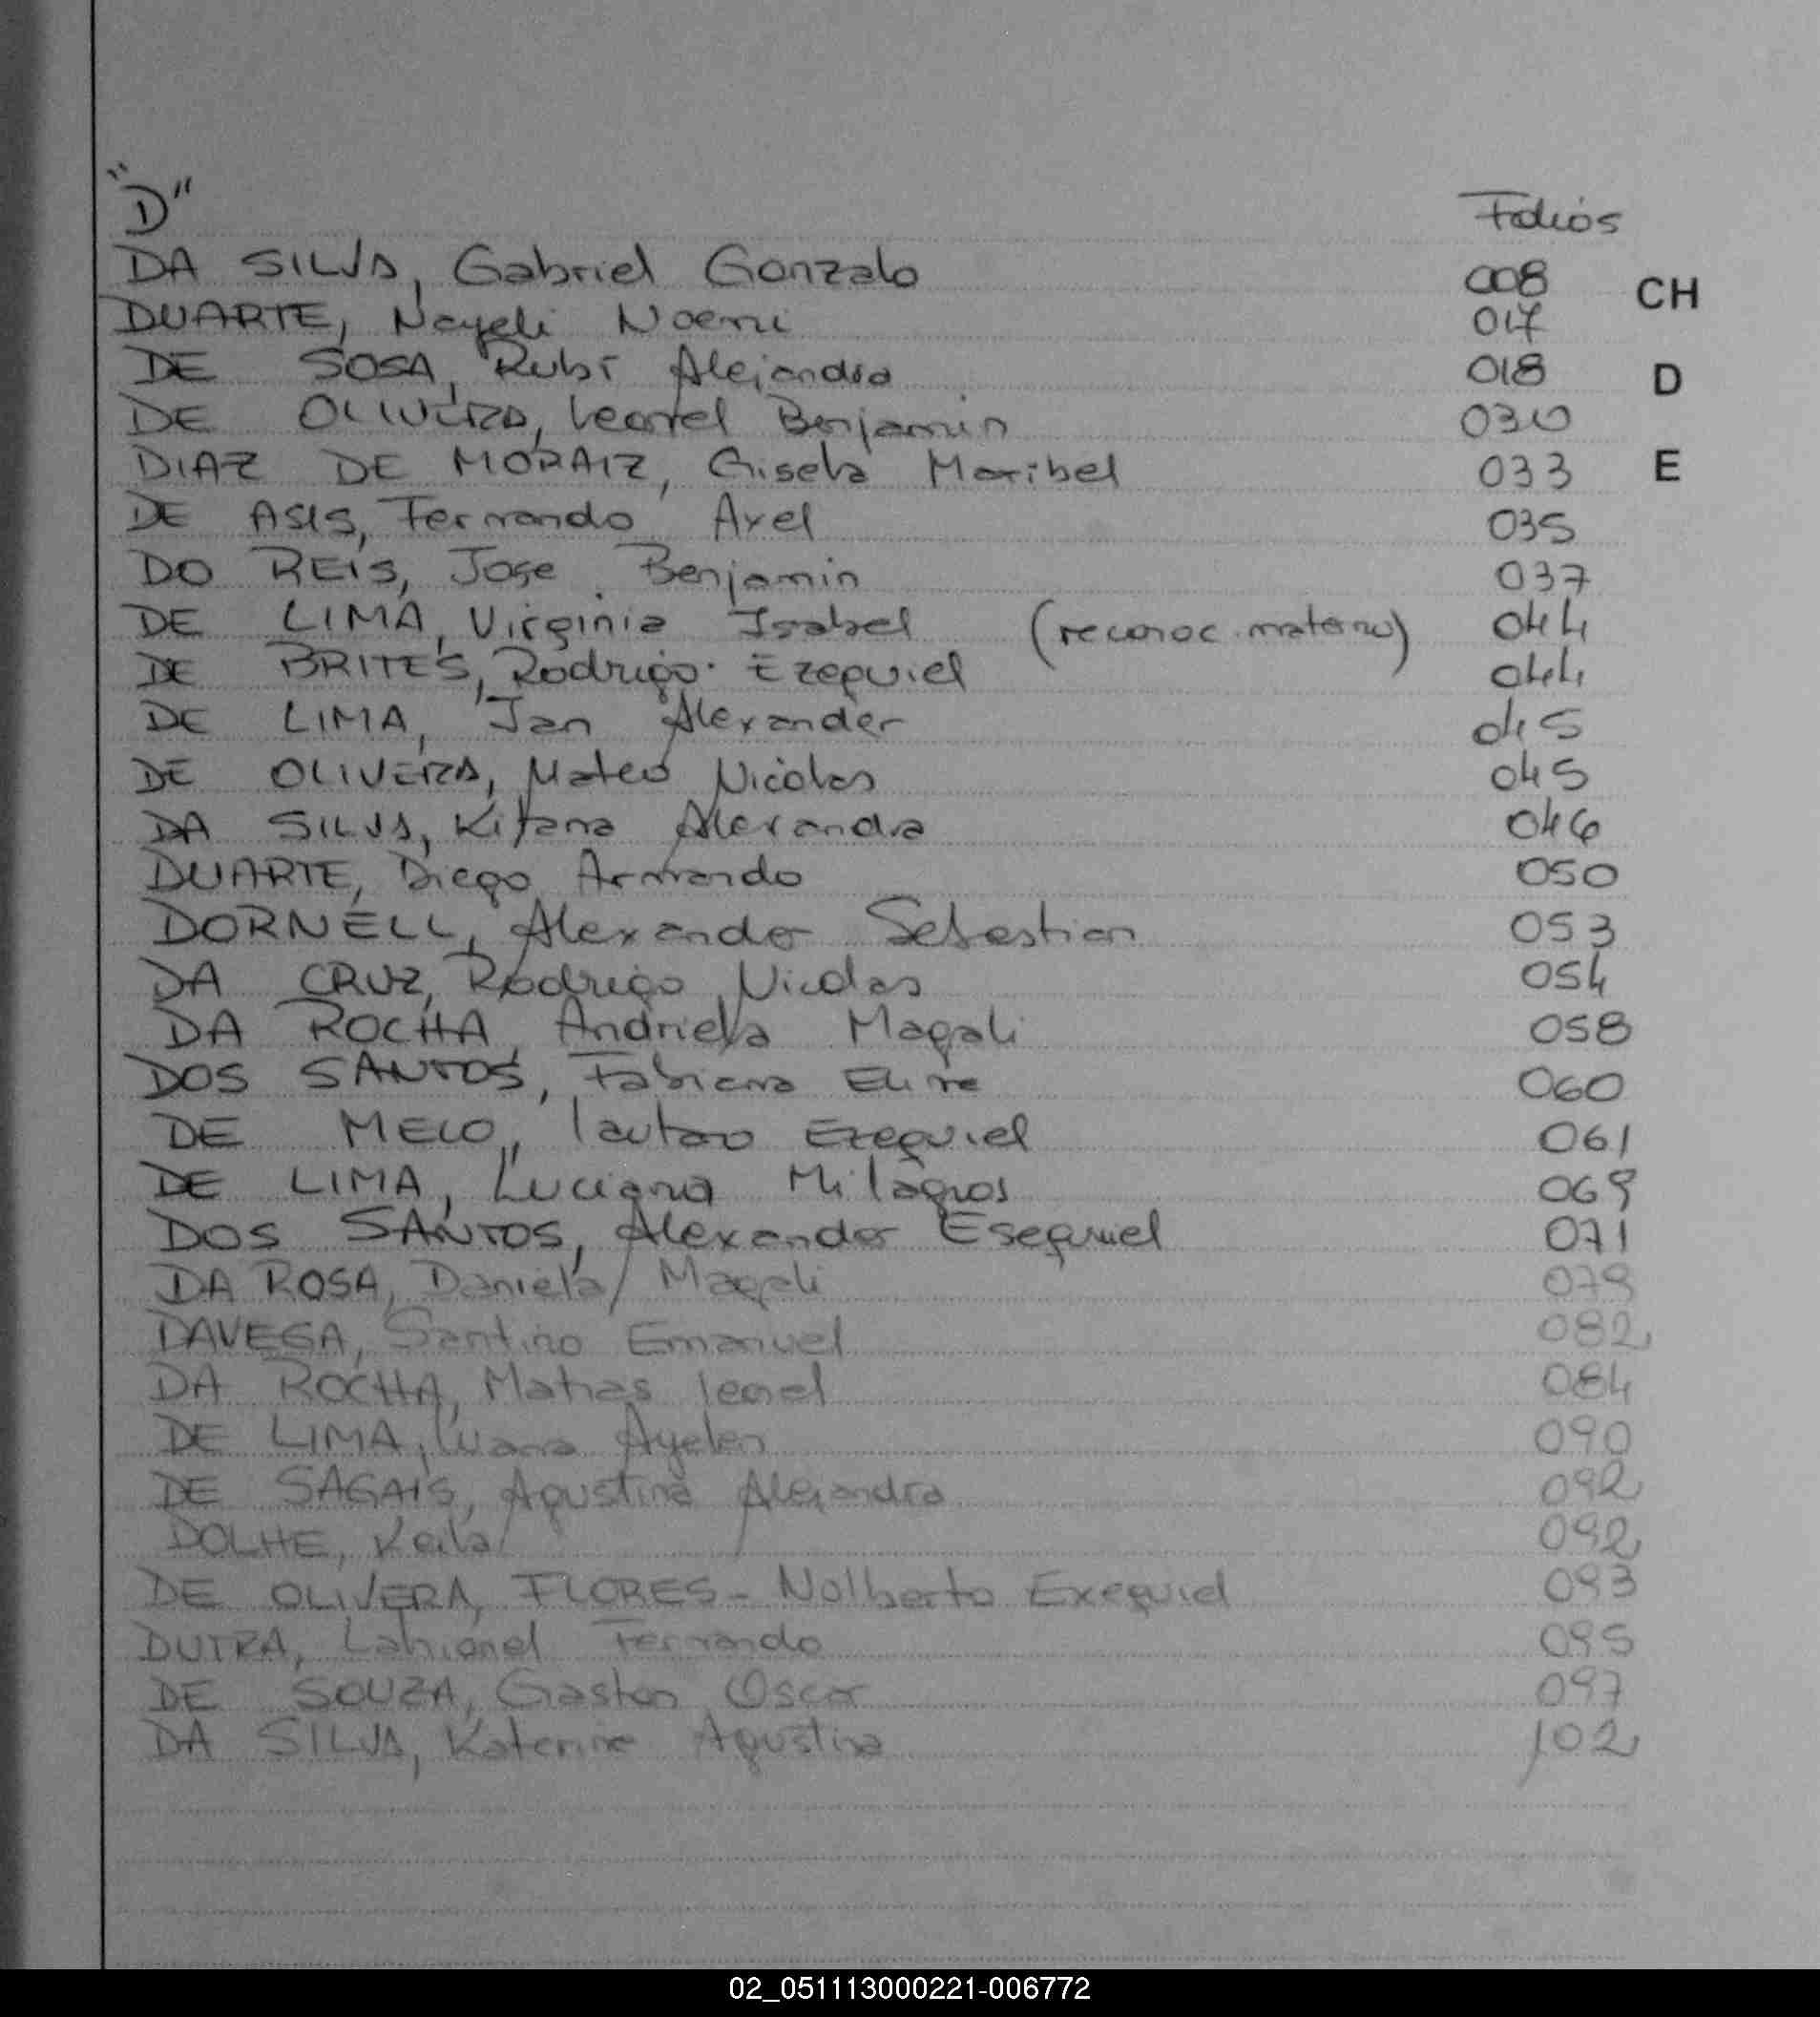 "D" Folios
DA SILVA, Gabriel Gonzalo 008 CH
DUARTE, Nayeli Noemi 017
DE SOSA, Rubí Alejandra 018 D
DE OLIVEIRA, Leonel Benjamin 030
DIAZ DE MORAIZ, Gisela Maribel 033 E
DE ASIS, Fernando Axel 035
DO REIS, Jose Benjamin 037
DE LIMA, Virginia Isabel (reconoc. materno) 044
DE BRITES, Rodrigo Ezequiel 044
DE LIMA, Ian Alexander 045
DE OLIVEIRA, Mateo Nicolas 045
DA SILVA, Kitana Alexandra 046
DUARTE, Diego Armando 050
DORNELL, Alexander Sebastian 053
DA CRUZ, Rodrigo Nicolas 054
DA ROCHA, Andriela Magali 058
DOS SANTOS, Fabiana Eline 060
DE MELO, Lautaro Ezequiel 061
DE LIMA, Luciana Milagros 069
DOS SANTOS, Alexander Esequiel 071
DA ROSA, Daniela Magali 079
DAVEGA, Santino Emanuel 082
DA ROCHA, Matias Leonel 084
DE LIMA, Luana Ayelen 090
DE SAGAIS, Agustina Alejandra 092
DOLHE, Keila 092
DE OLIVERA, FLORES - Nolberto Exequiel 093
DUTRA, Lahionel Fernando 095
DE SOUZA, Gaston Oscar 097
DA SILVA, Katerine Agustina 102
02_051113000221-006772